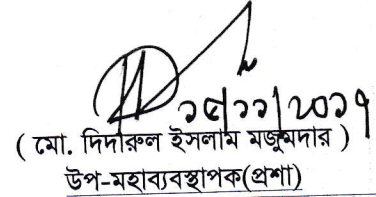 ১৫/১১/২০১৭
( মো. দিদারুল ইসলাম মজুমদার )
উপ-মহাব্যবস্থাপক(প্রশা)